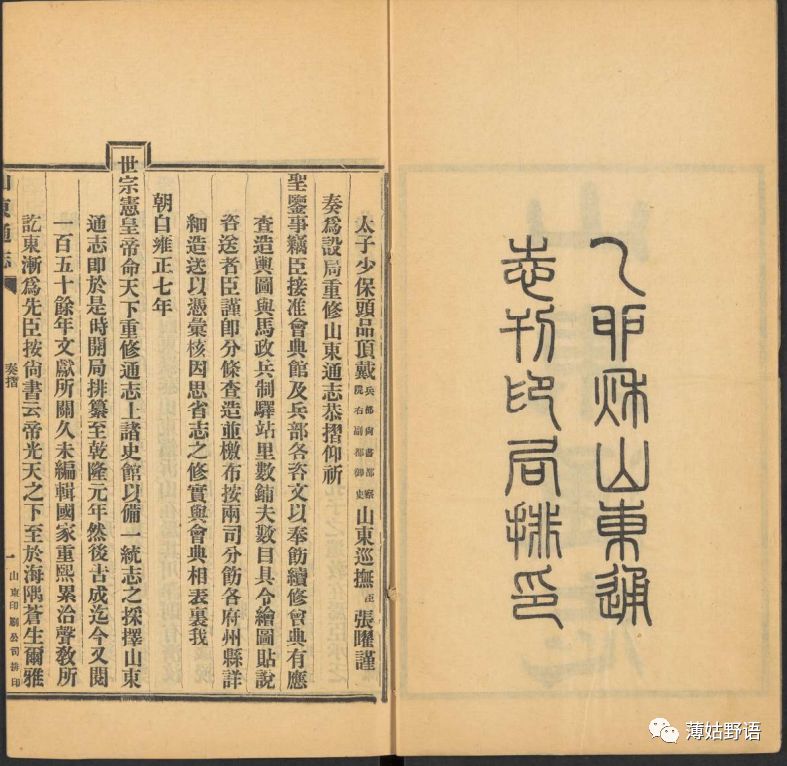 乙卯秋山東通
志刊印局排印
太子少保頭品頂戴兵部尙書都察院右副都御史山東巡撫臣張曜謹
奏爲設局重修山東通志恭摺仰祈
聖鑒事竊臣接准會典館及兵部各咨文以奉飭續修會典有應
查造輿圖與馬政兵制驛站里數鋪夫數目具令繪圖貼說
咨送者臣謹卽分條查造並檄布按兩司分飭各府州縣詳
細造送以憑彙核因思省志之修實與會典相表裏我
朝自雍正七年
世宗憲皇帝命天下重修通志上諸史館以備一統志之採擇山東
通志卽於是時開局排纂至乾隆元年然後告成迄今又閱
一百五十餘年文獻所關久未編輯國家重熙累洽聲敎所
訖東漸爲先臣按尙書云帝光天之下至於海隅蒼生爾雅
山東通志
奏摺
一
山東印刷公司排印
薄姑野语